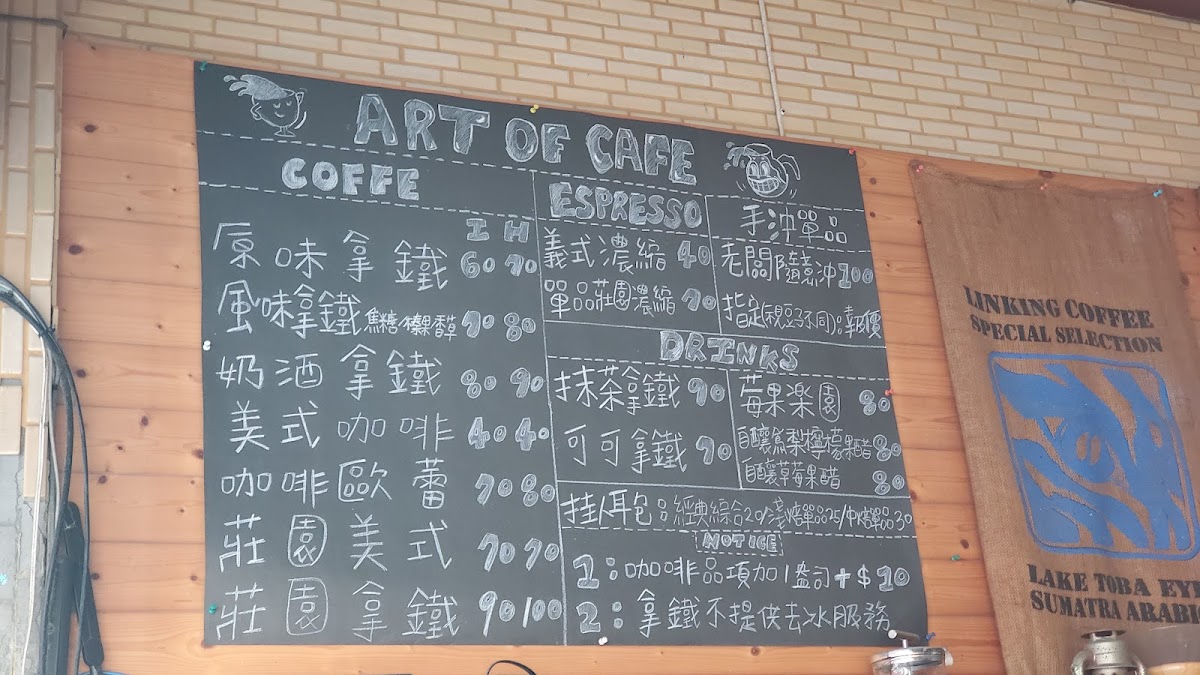 ART OF CAFE
COFFE
I H
原味拿鐵 60 70
風味拿鐵 焦糖 榛果 香草 70 80
奶酒拿鐵 80 90
美式咖啡 40 40
咖啡歐蕾 70 80
莊園美式 70 70
莊園拿鐵 90 100
ESPRESSO
義式濃縮 40
單品莊園濃縮 70
手沖單品
老闆隨意沖 100
指定(視豆子不同):報價
DRINKS
抹茶拿鐵 90
可可拿鐵 90
莓果楽園 80
自釀鳳梨檸檬果醋 80
自釀草莓果醋 80
挂耳包:經典綜合20/淺焙單品25/中焙單品30
NOTICE
1:咖啡品項加1盎司+$10
2:拿鐵不提供去冰服務
LINKING COFFEE
SPECIAL SELECTION
LAKE TOBA EYE
SUMATRA ARABI